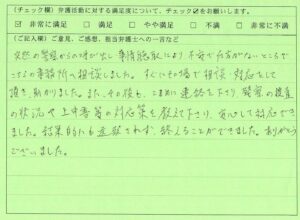 (チェック欄) 弁護活動に対する満足度について、チェック☑をお願いします。
☑ 非常に満足 □ 満足 □ やや満足 □ 不満 □ 非常に不満
(ご記入欄) ご意見、ご感想、担当弁護士への一言など
突然の警察からの呼び出し、事情聴取により、不安で仕方がないところで
こちらの事務所へ相談しました。すぐにその場で相談、対応をして
頂き、助かりました。また、その後も、こまめに連絡を下さり、警察の捜査
の状況や上申書等の対応策を教えて下さり、安心して対応でき
ました。結果的にも逮捕されず、終えることができました。ありがとう
ございました。